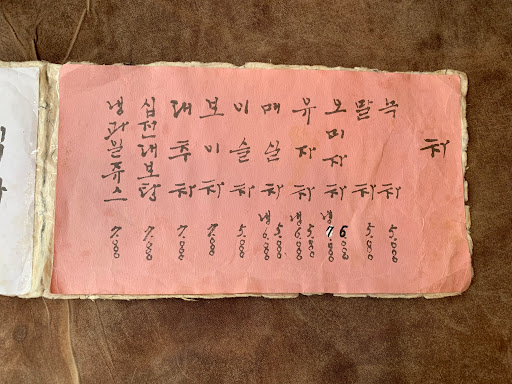 차
녹차 5.000
말차 5.000
오미자차 6.000 냉 7.000
유자차 5.000 냉 6.000
매실차 5.000 냉 6.000
이슬차 5.000
보이차 7.000
대추차 7.000
십전대보탕 7.000
냉과일쥬스 7.000